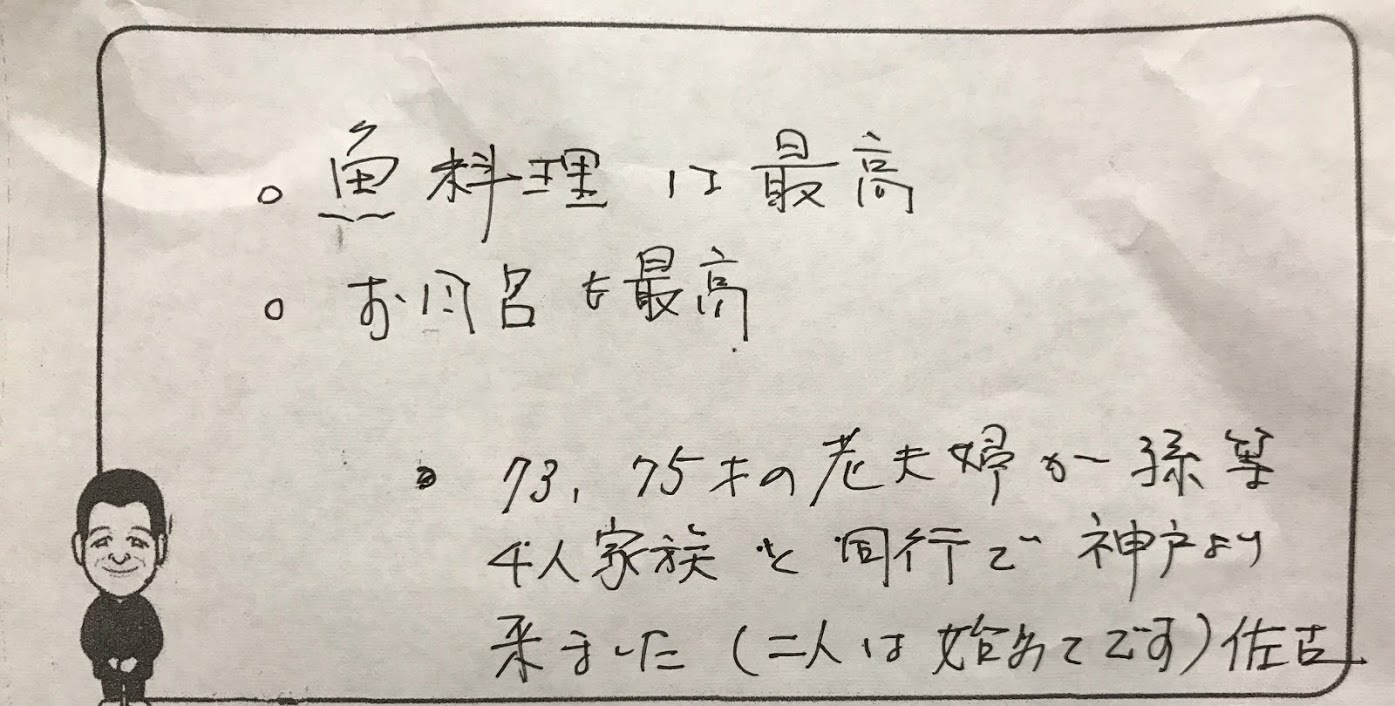 ○ 魚料理は最高
○ お風呂も最高
○ 73, 75才の老夫婦が孫等
4人家族と同行で神戸より
来ました (二人は始めてです) 佐古